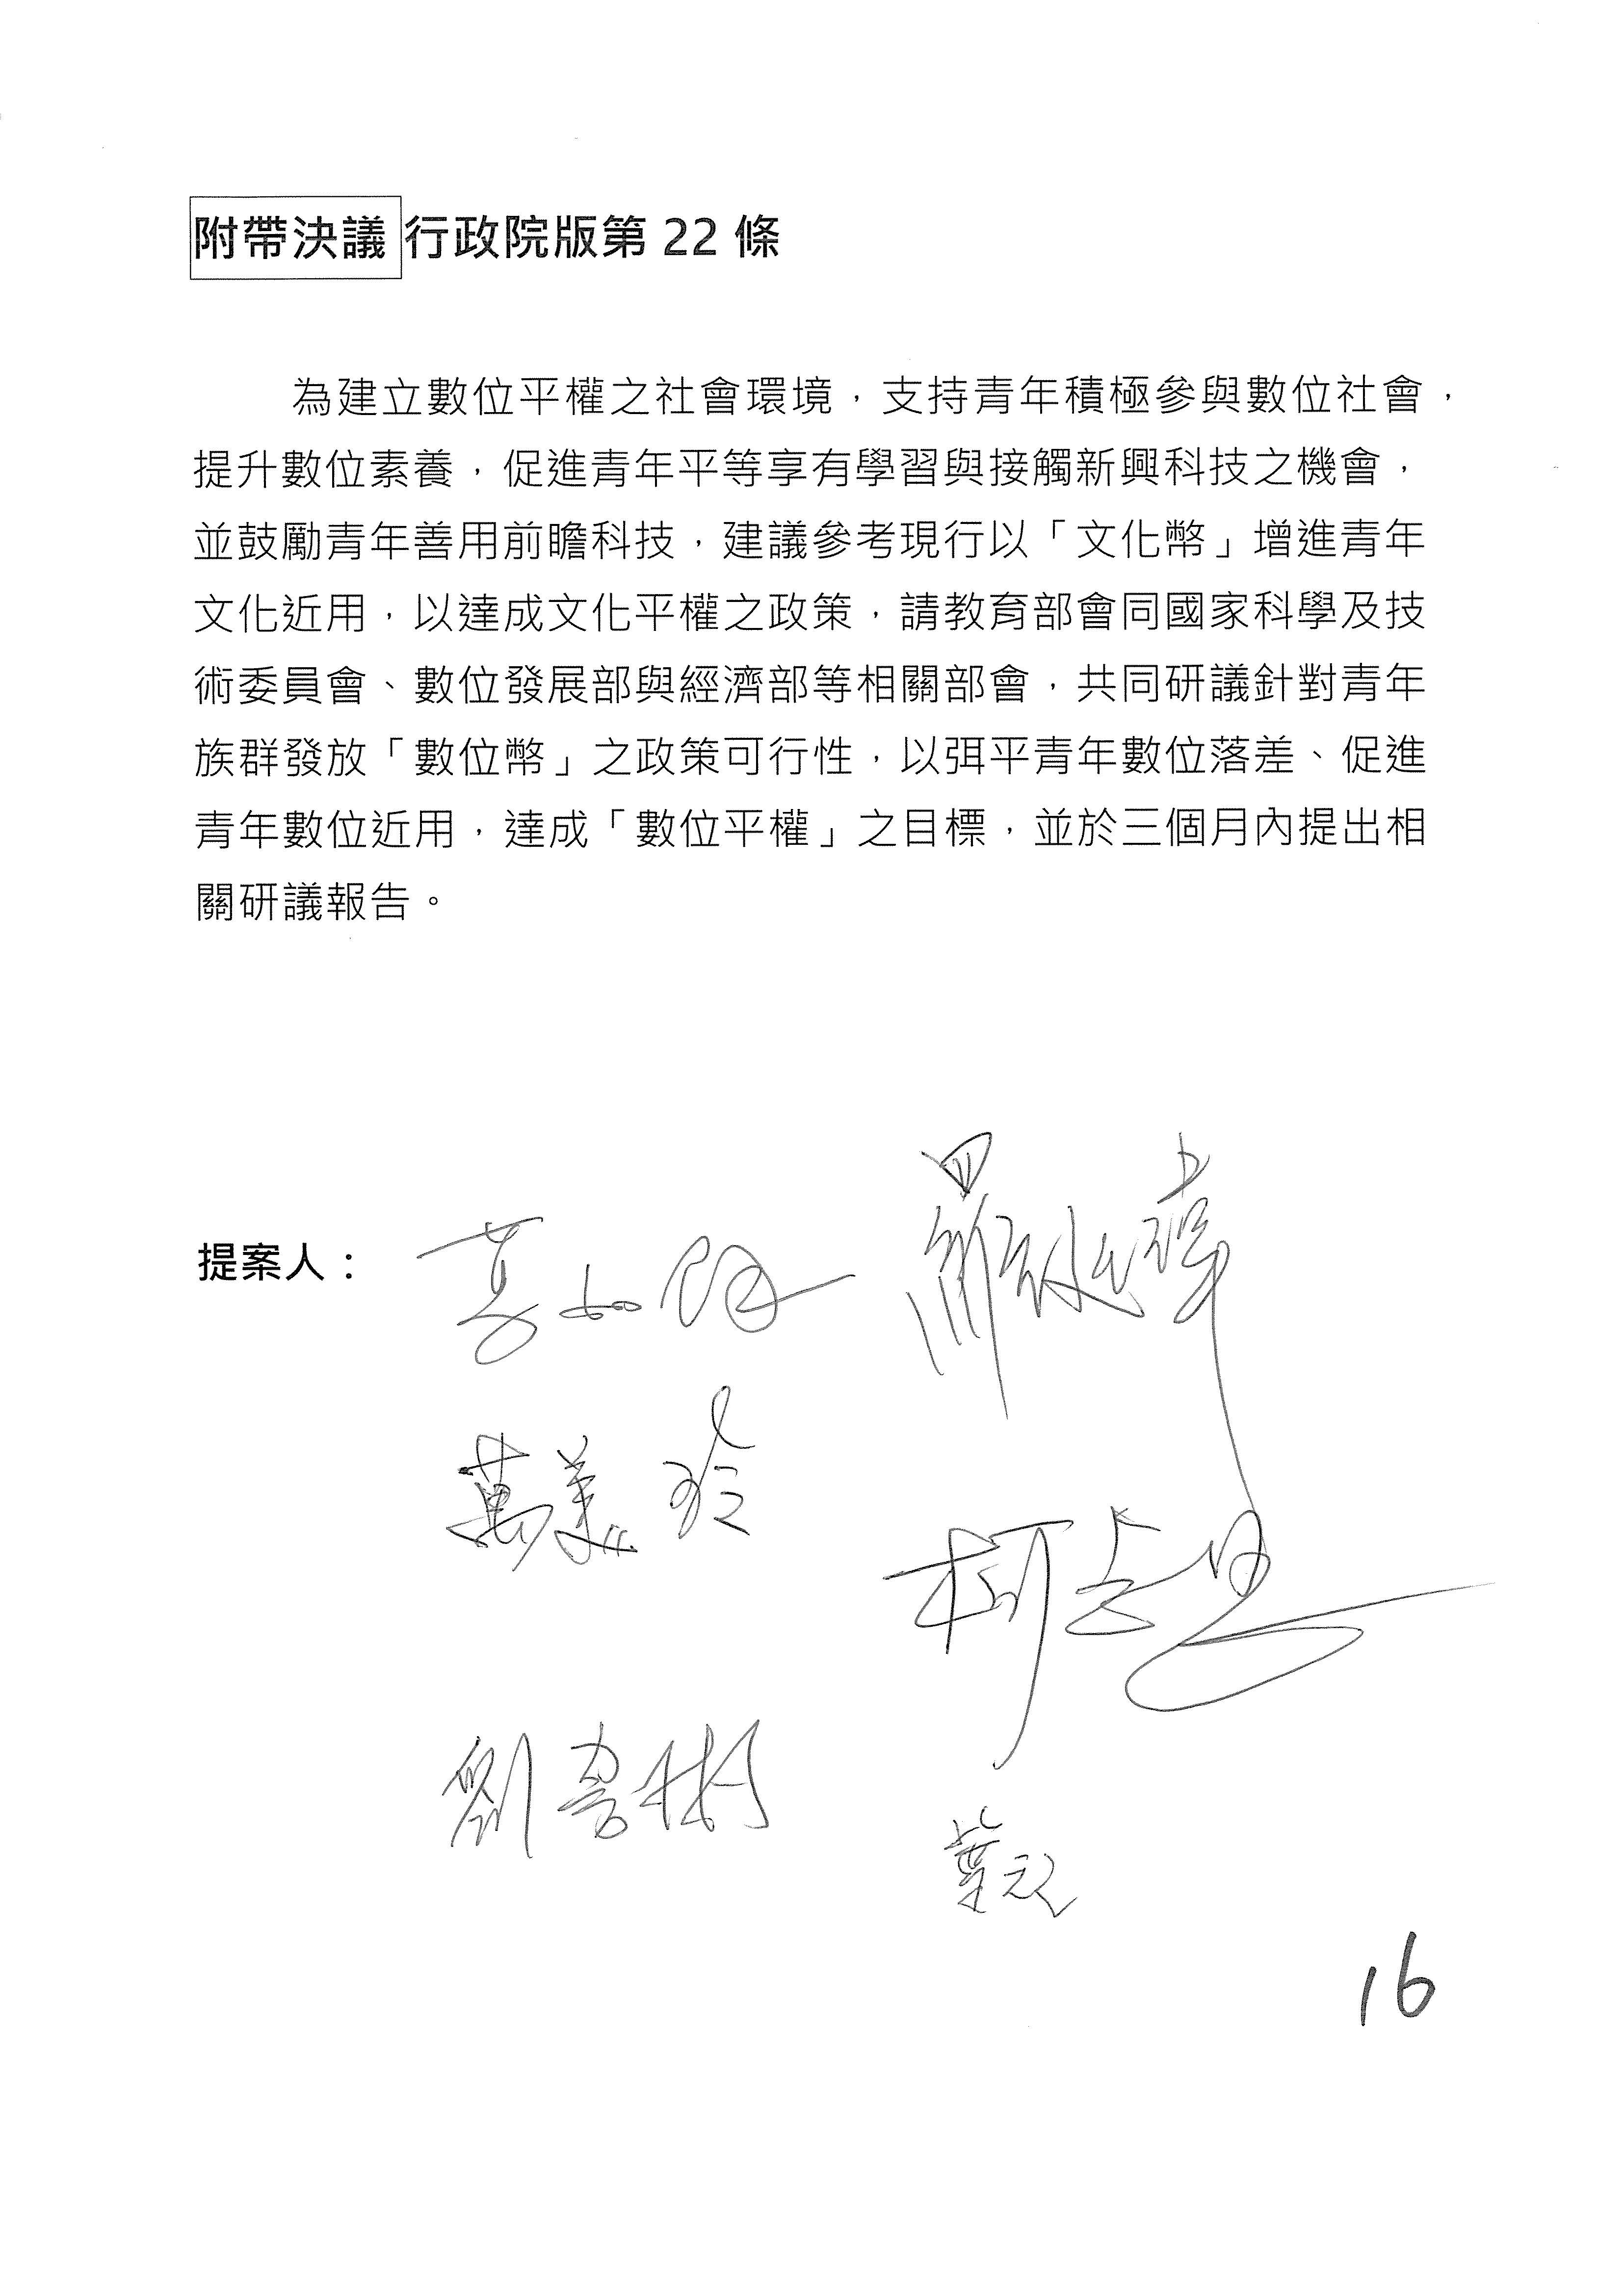 附帶決議 行政院版第 22 條
為建立數位平權之社會環境，支持青年積極參與數位社會，
提升數位素養，促進青年平等享有學習與接觸新興科技之機會，
並鼓勵青年善用前瞻科技，建議參考現行以「文化幣」增進青年
文化近用，以達成文化平權之政策，請教育部會同國家科學及技
術委員會、數位發展部與經濟部等相關部會，共同研議針對青年
族群發放「數位幣」之政策可行性，以弭平青年數位落差、促進
青年數位近用，達成「數位平權」之目標，並於三個月內提出相
關研議報告。
提案人：
萬美玲
柯志恩
劉書彬
葉元之
16